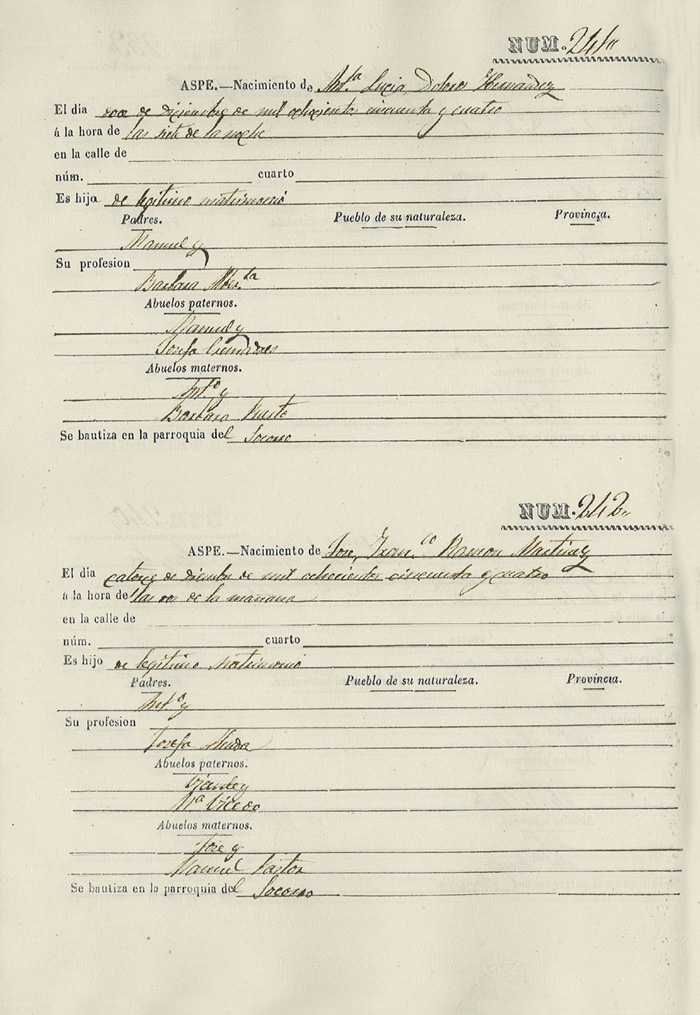 NUM. 241.
ASPE.—Nacimiento de Ant.ª Lucia Dolores Hernandez
El día doce de diciembre de mil ochocientos cincuenta y cuatro
á la hora de las siete de la noche
en la calle de
núm. cuarto
Es hija de legitimo matrimonio
Padres. Pueblo de su naturaleza. Provincia.
Manuel y
Su profesion
Barbara
Abuelos paternos.
Manuel y
Josefa
Abuelos maternos.
Ant.º y
Barbara
Se bautiza en la parroquia del Socorro
NUM. 242.
ASPE.—Nacimiento de Jose Fran.co Ramon Martinez
El día catorce de diciembre de mil ochocientos cincuenta y cuatro
á la hora de las dos de la mañana
en la calle de
núm. cuarto
Es hijo de legitimo Matrimonio
Padres. Pueblo de su naturaleza. Provincia.
Ant.º y
Su profesion
Josefa
Abuelos paternos.
y
M.ª
Abuelos maternos.
Jose y
Manuel Pastor
Se bautiza en la parroquia del Socorro